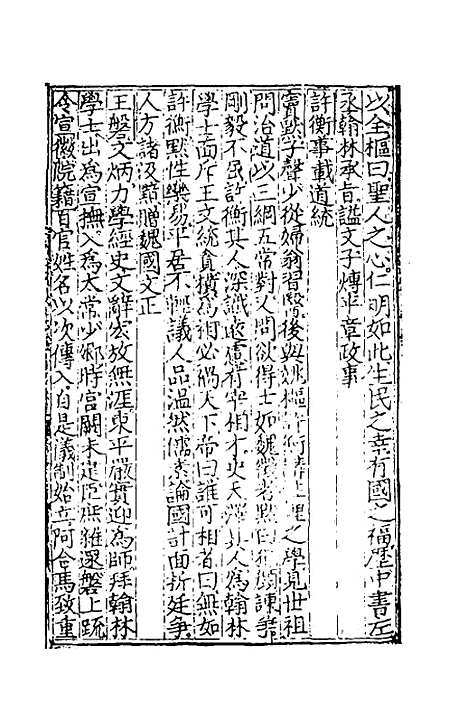 以全樞曰聖人之心仁明如此生民之幸有國之福歷中書左
丞翰林承旨謚文子燉平章政事
許衡事載道統
竇默子聲少從婦翁習醫後與姚樞許衡講生理之學見世祖
問治道以三綱五常對又問欲得士如魏徵者默曰犯顏諫爭
剛毅不屈許衡其人深識遠慮有宰相才史天澤其人為翰林
學士面斥王文統貪橫為相必禍天下帝曰誰可相者曰無如
許衡默性樂易平居不輕議人品温然儒素論國計面折廷爭
人方諸汲黯贈魏國文正
王磐文炳力學經史文辭宏放無涯東平嚴實迎為師拜翰林
學士出為宣撫入為太常少卿時宮闕未定臣庶雜遝磐上疏
令宣徽院籍百官姓名以次傳入自是儀制始立阿合馬致重